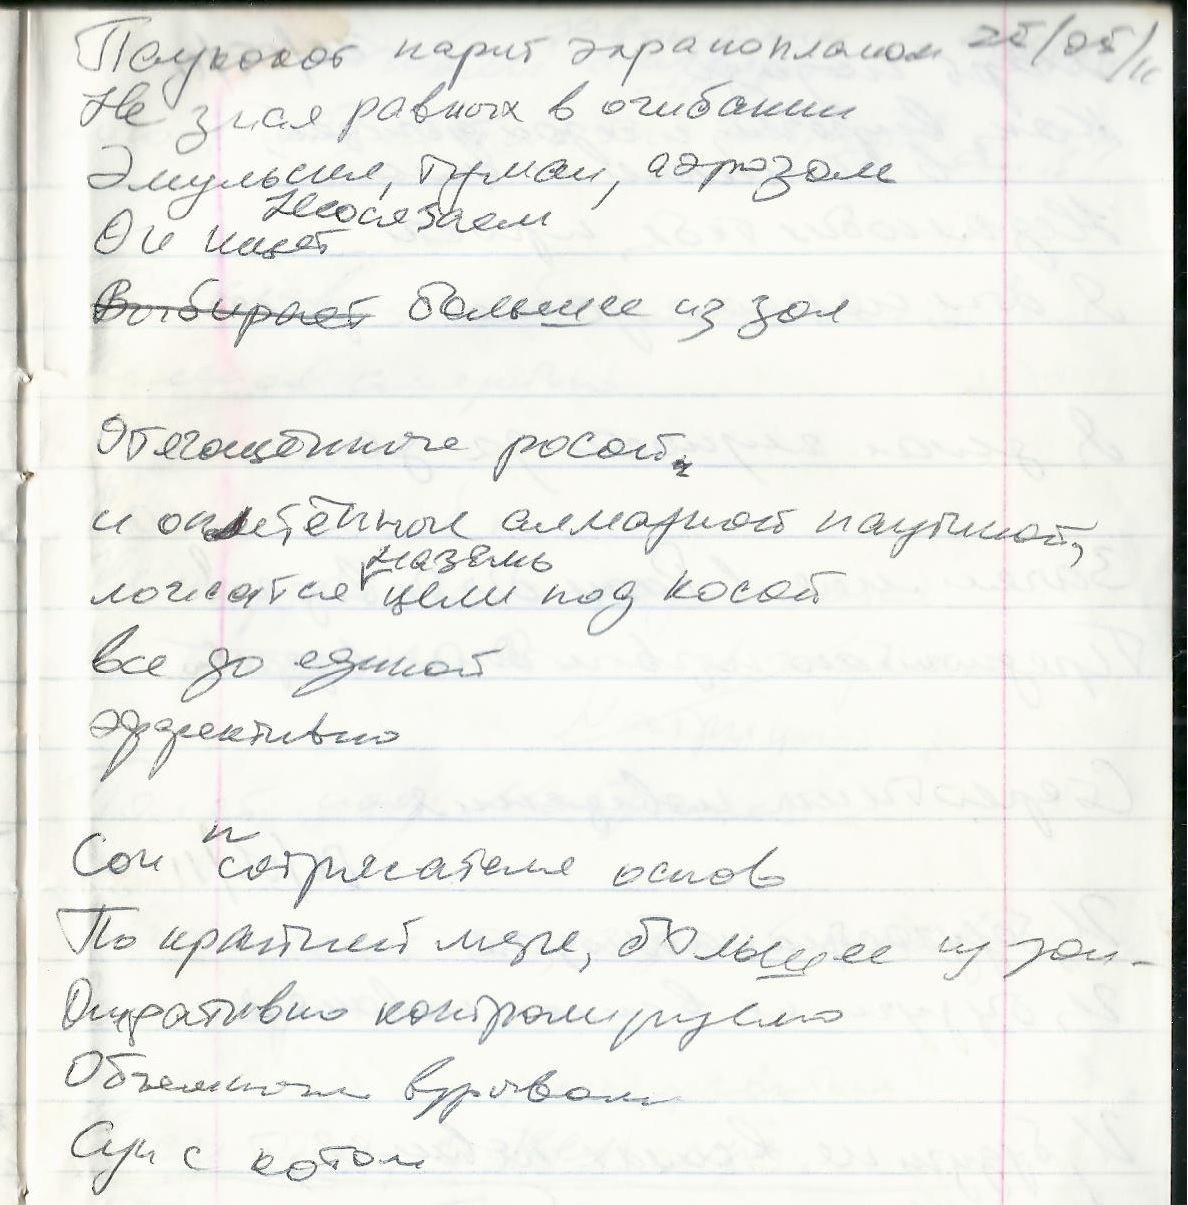 Полукокот парит экранопланом 25/05/11
Не зная равных в огибании
Эмульсия, туман, аэрозоль
неосязаем
Он ищет
Выбирает большее из зол
Отягощённые росой,
и оплетённые алмазной паутиной,
наземь
ложатся цели под косой
все до единой
эффективно
п
Сон сотрясателя основ
По крайней мере, большее из зол -
Оперативно контролируемо
Объемным взрывом
Суп с котом